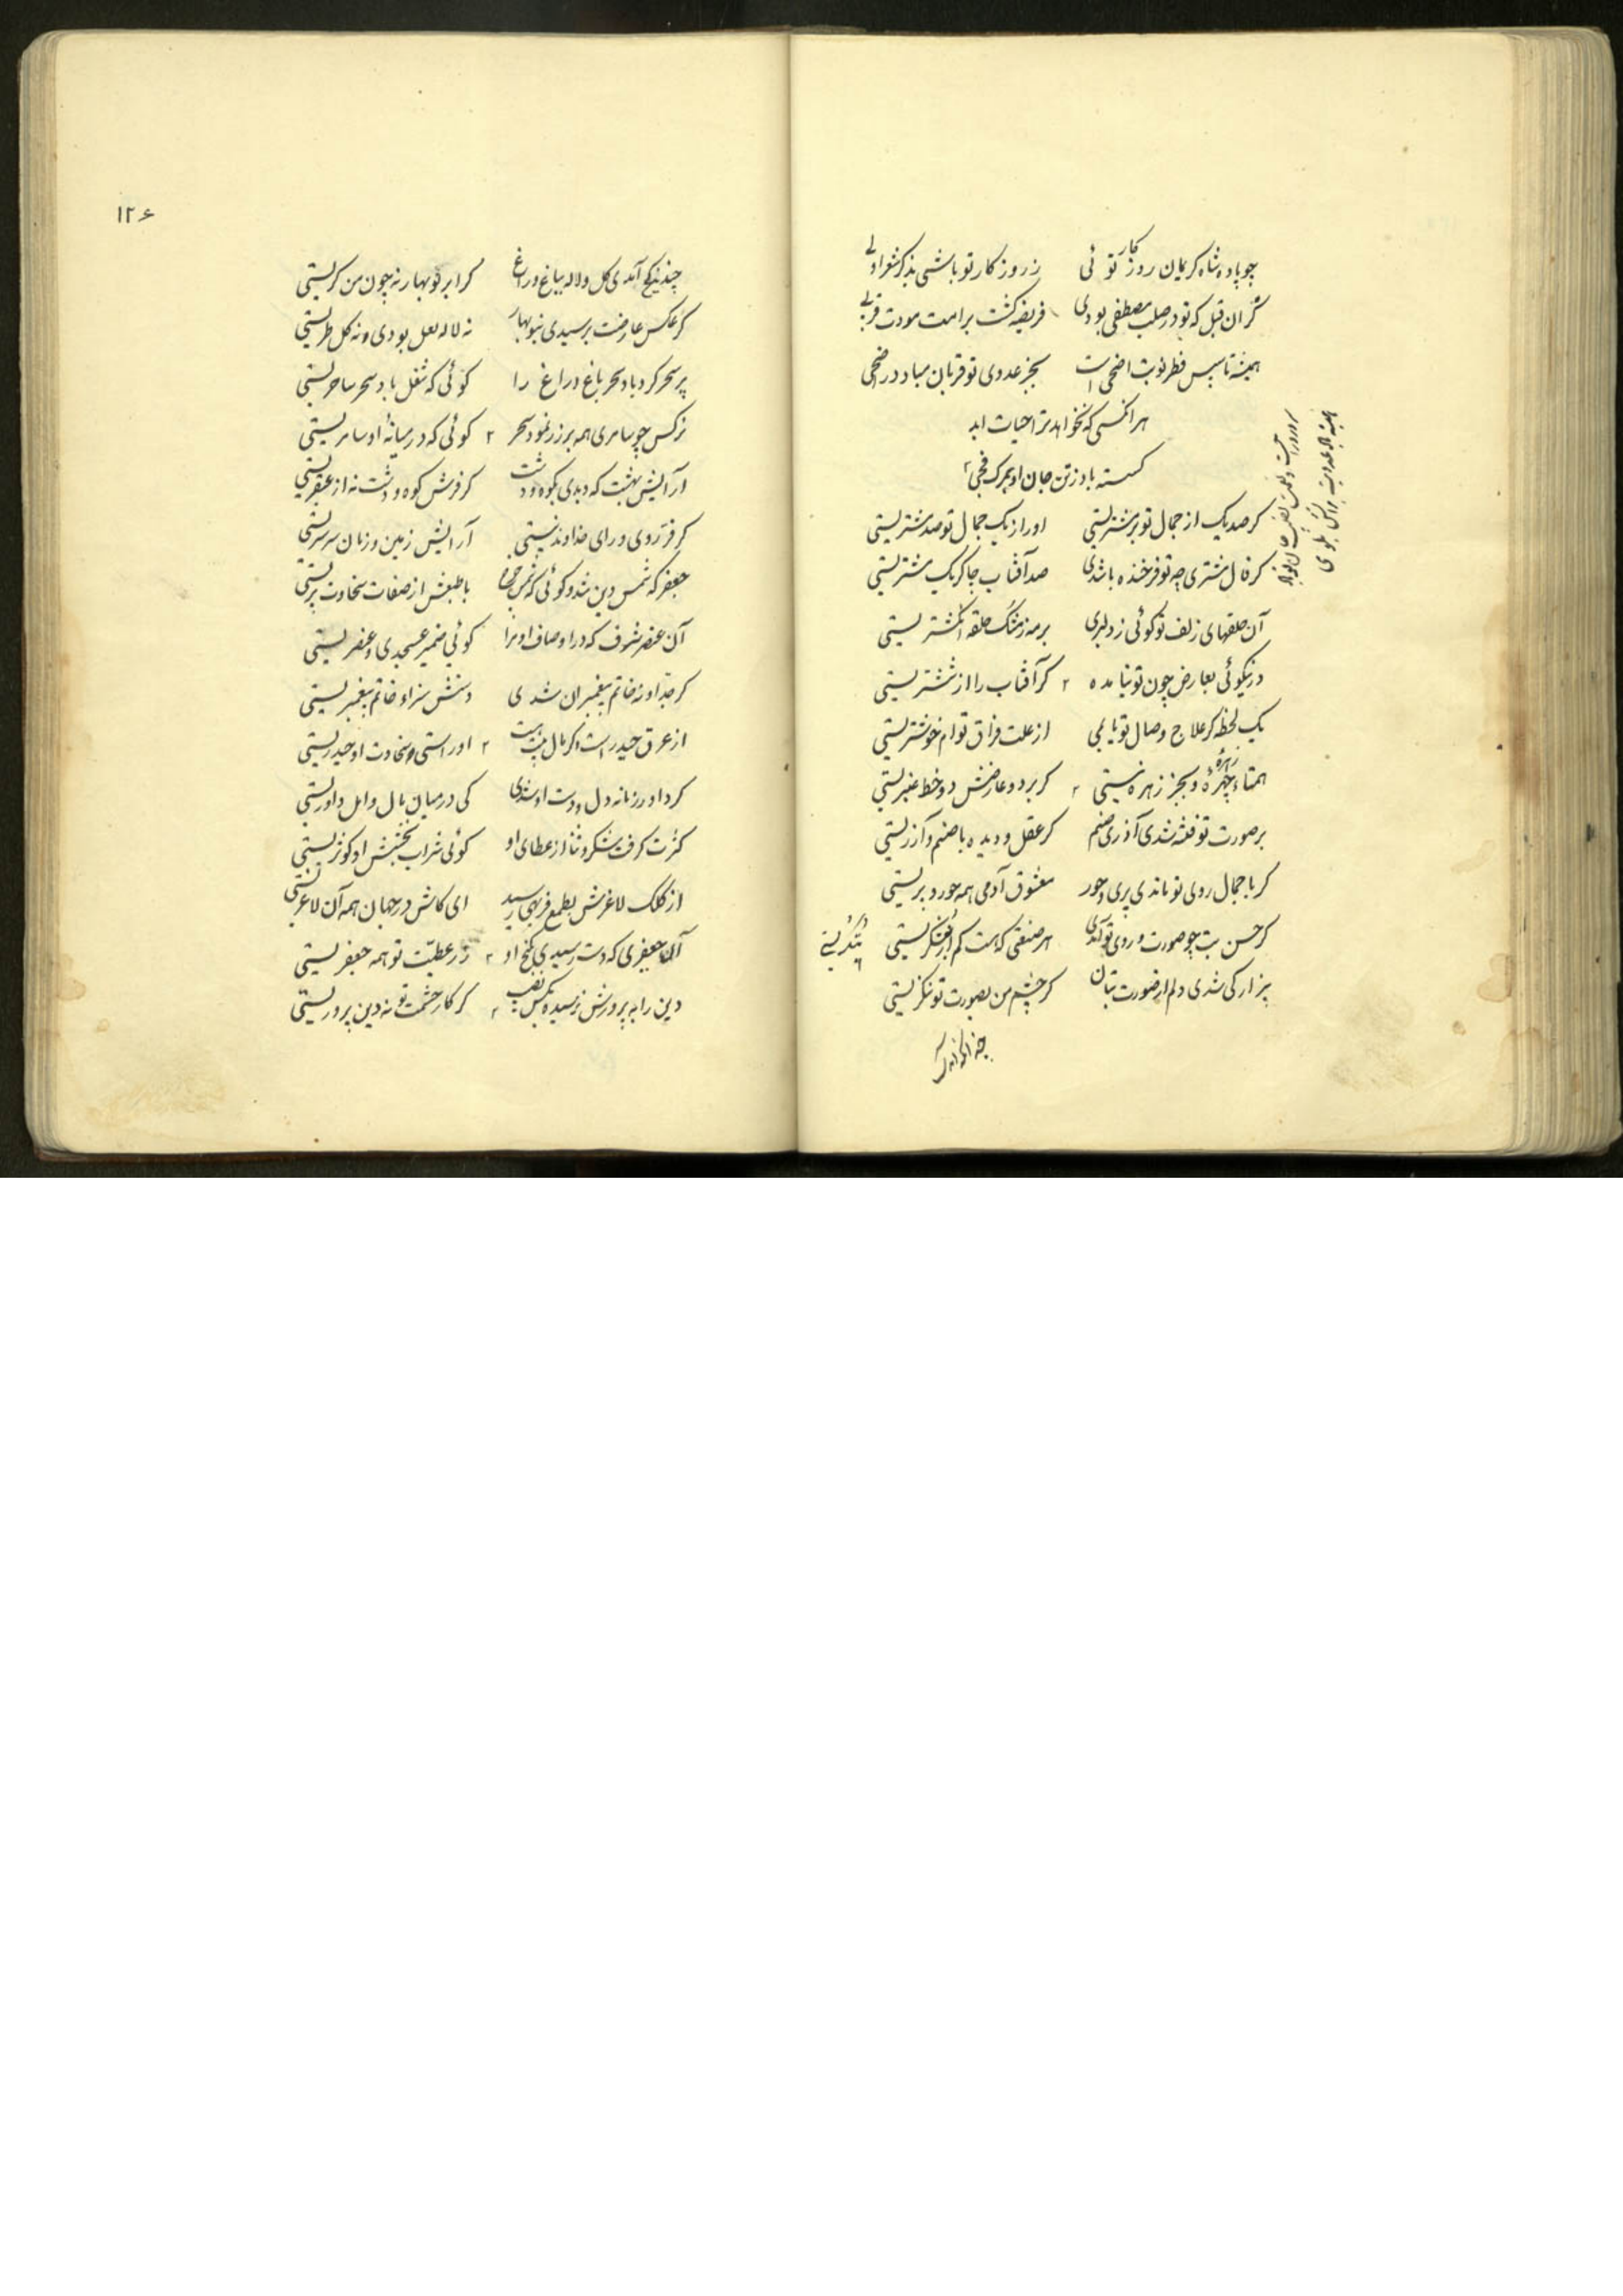 چو پادشاه کریمان روزکار توئی زروزکار تو باشی بذکر شعر اولی
گر ان قبل که تو در صلب مصطفی بودی فریضه گشت بر امت مودت قربی
همیشه تا سپس فطر نوبت اضحی است بجز عدوی تو قربان مباد در اضحی
هر انکسی که نخواهد ترا حیات ابد
کسسته باد ز تن جان او بمرک فجی
کر صد یک از جمال تو بر مشتریستی او را ز یک جمال تو صد مشتریستی
کر فال مشتری چه تو فرخنده باشدی صد آفتاب چاکر یک مشتریستی
آن حلقهای زلف تو کوئی ز دلبری بر مه ز مشک حلقه انکشتریستی
در نیکوئی بعارض چون تو نیامده کر آفتاب را از ششتریستی
یک لحظه کر علاج وصال تو یابمی از علت فراق توام خوشتریستی
همتاء چهرهٔ و بجز زهره نیستی کر بر دو عارضش دو خط عنبریستی
بر صورت تو فتنه شدی آذری صنم کر عقل و دیده با صنم و آزریستی
کر با جمال روی تو ماندی پری و حور معشوق آدمی همه حور و پریستی
کر حسن بت چو صورت و روی تو آمدی هر صنعتی که هست کم از بتگریستی
بیزار کی شدی دلم از صورت بتان کر چشم من بصورت تو ننکریستی
۱۲۶
چندینکه آمدی کل و لاله بباغ و راغ کر ابر نوبهار نه چون من کریستی
کر عکس عارضت برسیدی بنوبهار نه لاله لعل بودی و نه کل طریستی
پر سحر کرد باد سحر باغ و راغ را کوئی که شغل باد سحر ساحریستی
نرکس چو سامری همه بر زر نمود سحر کوئی که در میانهٔ او سامریستی
آرایش بهشت که دیدی بکوه و دشت کر فرش کوه و دشت نه از عبقریستی
کر فر روی و رای خداوند نیستی آرایش زمین و زمان سرسریستی
جعفر که شمس دین شد و کوئی که شمس چرخ با طبعش از صفات سخاوت بریستی
آن عنصر شرف که در اوصاف او مرا کوئی ضمیر عسجدی و عنصریستی
کر جد او نه خاتم پیغمبران شدی دستش سزاء خاتم پیغمبریستی
از عرق حیدر است و کر مال بت بیت او راستی و سخاوت او حیدریستی
کر داور زمانه دل و دست او شدی کی در میان مال و امل داوریستی
کثرت کرفت شکر و ثنا از عطای او کوئی شراب بخشش او کوثریستی
از کلک لاغرش بطمع فربهی رسید ای کاش در جهان همه آن لاغریستی
آن جعفری که دست رسیدی بکنج او زر عطیت تو همه جعفریستی
دین را به پرورش نرسیدی بکس نصیب کر کار حشمت تو نه دین پروریستی